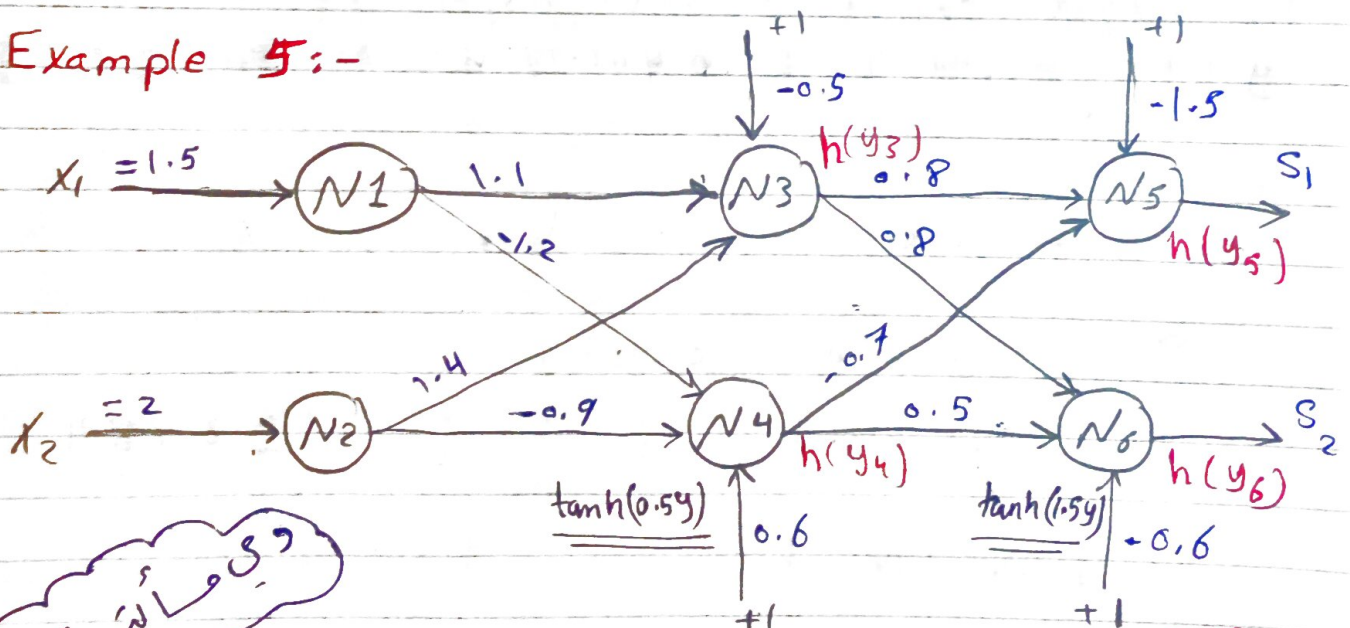 Example 5:-
+1
+1
-0.5
-1.5
X1 =1.5
N1
1.1
N3
h(y3)
0.8
N5
S1
h(y5)
0.8
-0.7
X2 =2
N2
-0.9
N4
h(y4)
0.5
N6
S2
h(y6)
tanh(0.5y)
0.6
tanh(1.5y)
-0.6
+1
+1